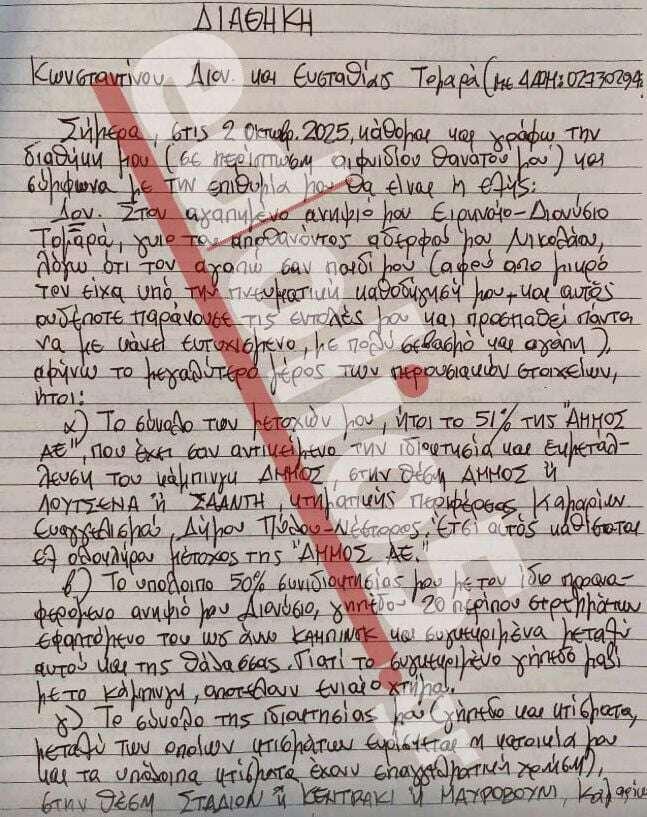 ΔΙΑΘΗΚΗ
Κωνσταντίνου Διον. και Ευσταθίας Τομαρά (με ΑΔΤΗ: 02730294
Σήμερα, στις 2 Οκτωβρ. 2025, κάθομαι και γράφω την
διαθήκη μου (σε περίπτωση αιφνιδίου θανάτου μου) και
σύμφωνα με την επιθυμία μου θα είναι η εξής:
Στον αγαπημένο ανηψιό μου Ειρηναίο-Διονύσιο
Τομαρά, γυιο του αποθανόντος αδερφού μου Νικολάου,
λόγω ότι τον αγαπώ σαν παιδί μου (αφού από μικρό
τον είχα υπό την πνευματική καθοδήγησή μου, και αυτός
ουδέποτε παράκουσε τις εντολές μου και προσπαθεί πάντα
να με κάνει ευτυχισμένο, με πολύ σεβασμό και αγάπη),
αφήνω το μεγαλύτερο μέρος των περουσιακών στοιχείων,
ήτοι:
α) Το σύνολο των μετοχών μου, ήτοι το 51% της "ΑΜΜΟΣ
ΑΕ", που έχει σαν αντικείμενο την ιδιοκτησία και εκμετάλ-
λευση του κάμπινγκ ΑΜΜΟΣ, στην θέση ΑΜΜΟΣ ή
ΛΟΥΤΣΕΝΑ ή ΣΑΑΝΤΗ, κτηματικής περιφέρειας Καμαρίων
Ευαγγελισμού, Δήμου Πύλου-Νέστορος. Έτσι αυτός καθίσταται
εξ ολοκλήρου μέτοχος της "ΑΜΜΟΣ ΑΕ."
β) Το υπόλοιπο 50% συνιδιοκτησίας μου με τον ίδιο προανα-
φερόμενο ανηψιό μου Διονύσιο, γηπέδου 20 περίπου στρεμμάτων
εφαπτόμενο του ως άνω ΚΑΜΠΙΝΓΚ και συγκεκριμένα μεταξύ
αυτού και της θάλασσας. Γιατί το συγκεκριμένο γήπεδο μαζί
με το κάμπινγκ, αποτελούν ενιαίο κτήμα.
γ) Το σύνολο της ιδιοκτησίας μου (γήπεδο και κτίσματα,
μεταξύ των οποίων κτισμάτων ευρίσκεται η κατοικία μου
και τα υπόλοιπα κτίσματα έχουν επαγγελματική χρήση),
στην θέση ΣΤΑΔΙΟΝ ή ΚΕΝΤΡΑΚΙ ή ΜΑΥΡΟΒΟΥΝΙ,